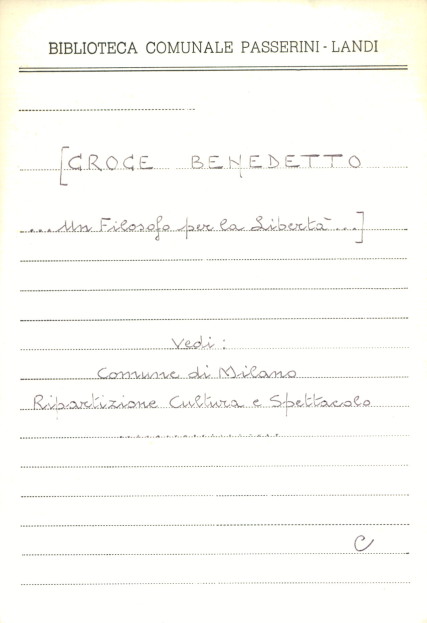 BIBLIOTECA COMUNALE PASSERINI - LANDI
[CROCE BENEDETTO
... Un Filosofo per la Libertà ...]
Vedi :
Comune di Milano
Ripartizione Cultura e Spettacolo
..................
C